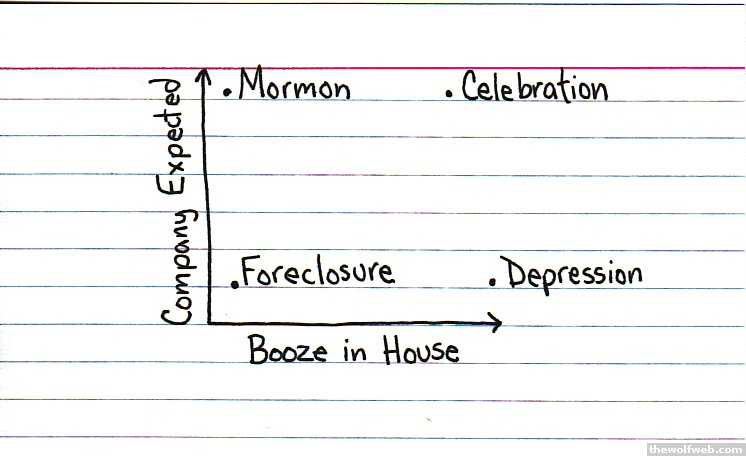 Mormon
Celebration
Company Expected
Foreclosure
Depression
Booze in House
thewolfweb.com